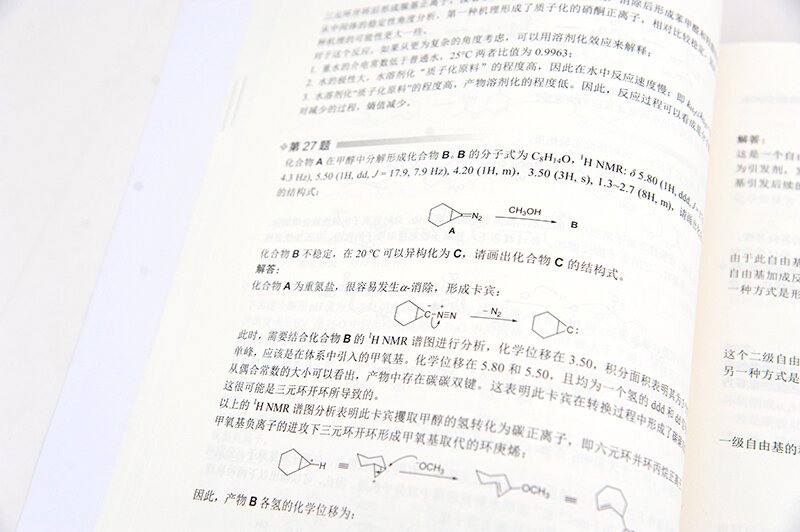 三元环开环后形成羰基正离子，
消除后形成苯甲醛和
从中间体的稳定性角度分析，第一种机理形成了质子化的硝酮正离子，相对比较稳定，
种机理的可能性更大一些。
对于这个反应，如果从更为复杂的角度考虑，可以用溶剂化效应来解释：
1. 重水的介电常数低于普通水，25°C 两者比值为 0.9963；
2. 水的极性大，水溶剂化“质子化原料”的程度高，因此在水中反应速度慢：即
3. 水溶剂化“质子化原料”的程度高，产物溶剂化的程度低。因此，反应过程可以看成是
对减少的过程，熵值减少。
第 27 题
化合物 A 在甲醇中分解形成化合物 B。B 的分子式为 C₈H₁₄O，¹H NMR: δ 5.80 (1H, ddd, J =
4.3 Hz), 5.50 (1H, dd, J = 17.9, 7.9 Hz), 4.20 (1H, m)，3.50 (3H, s), 1.3~2.7 (8H, m)，请画出
的结构式：
=N₂ CH₃OH B
A
化合物 B 不稳定，在 20 °C 可以异构化为 C，请画出化合物 C 的结构式。
解答：
化合物 A 为重氮盐，很容易发生α-消除，形成卡宾：
C−N≡N − N₂ C:
此时，需要结合化合物 B 的 ¹H NMR 谱图进行分析，化学位移在 3.50，积分面积表明其为
单峰，应该是在体系中引入的甲氧基。化学位移在 5.80 和 5.50，且均为一个氢的 ddd 和 dd
从偶合常数的大小可以看出，产物中存在碳碳双键。这表明此卡宾在转换过程中形成了碳
这很可能是三元环开环所导致的。
以上的 ¹H NMR 谱图分析表明此卡宾攫取甲醇的氢转化为碳正离子，即六元环并环丙烷正离
甲氧基负离子的进攻下三元环开环形成甲氧基取代的环庚烯：
H = ⁻OCH₃ OCH₃ =
因此，产物 B 各氢的化学位移为：
解答：
这是一个自由
为引发剂，
基引发后续的
由于此自由基
自由基加成反
一种方式是形
这个二级自由
另一种方式是
一级自由基的